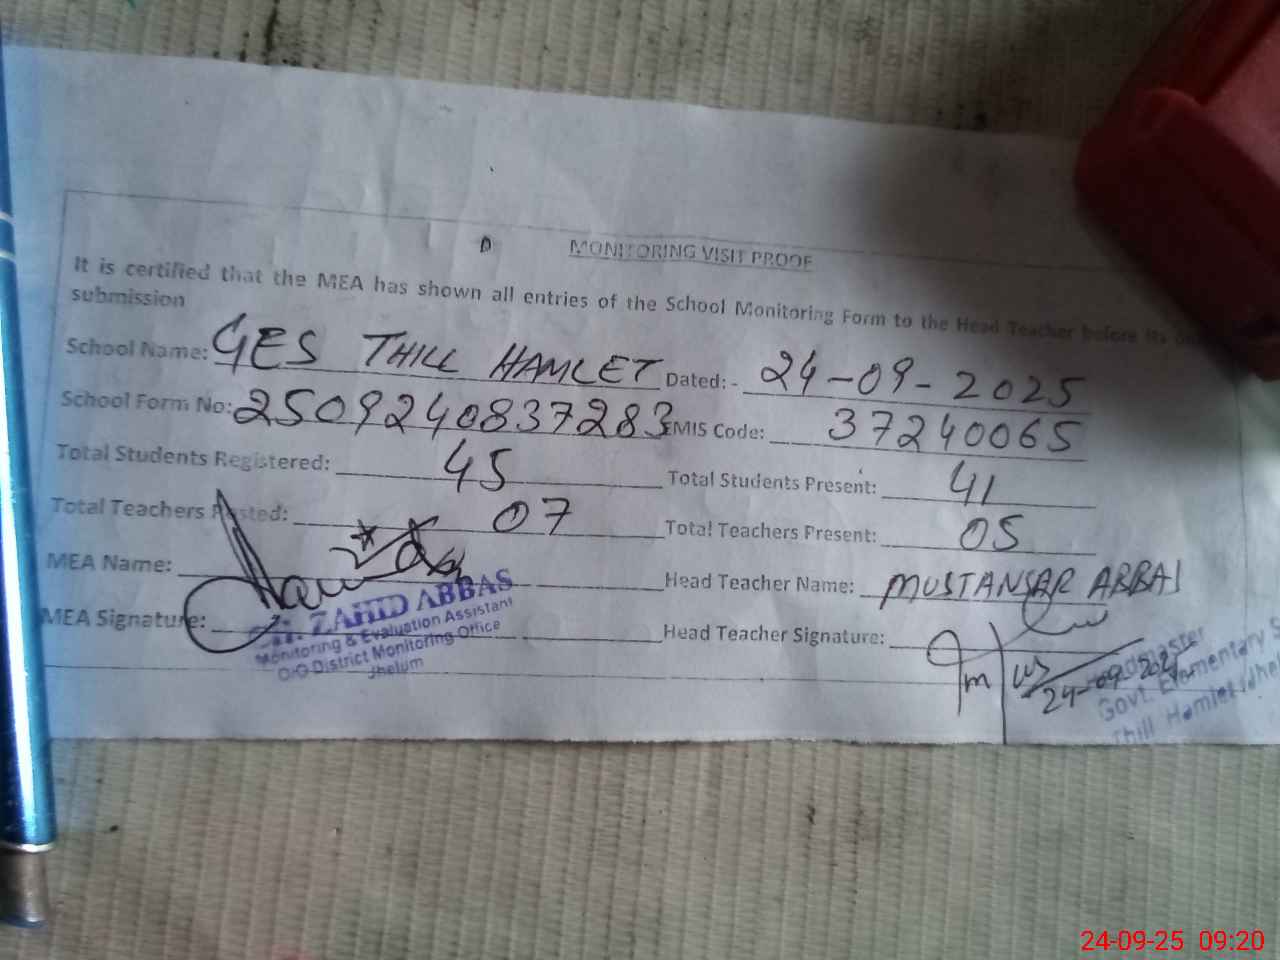 MONITORING VISIT PROOF
It is certified that the MEA has shown all entries of the School Monitoring Form to the Head Teacher before its
submission
School Name: GES THILL HAMLET Dated: - 24-09-2025
School Form No: 2509240837283 EMIS Code: 37240065
Total Students Registered: 45 Total Students Present: 41
Total Teachers Posted: 07 Total Teachers Present: 05
MEA Name: Head Teacher Name: MUSTANSAR ABBAS
MEA Signature: Head Teacher Signature:
ZAHID ABBAS
Monitoring & Evaluation Assistant
O/O District Monitoring Office
Jhelum
24-09-2025
Headmaster
Govt. Elementary S
Thill Hamlet Jhel
24-09-25 09:20